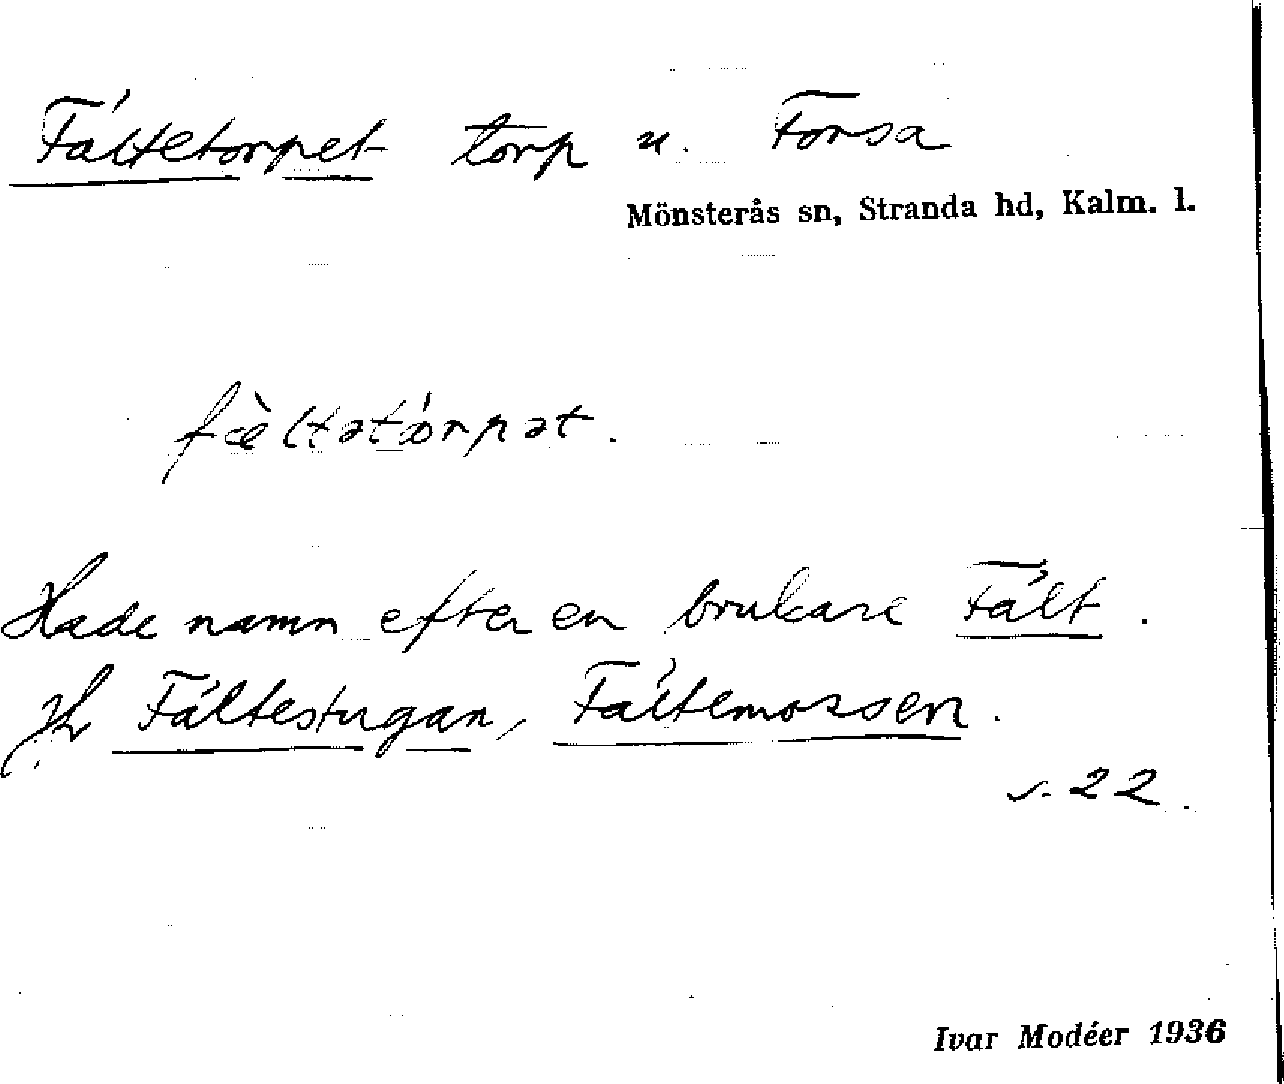 Fältetorpet torp u. Forsa
Mönsterås sn, Stranda hd, Kalm. l.
fæ̀ltətórpət.
Hade namn efter en brukare Fält.
Jfr Fältestugan, Fältemossen.
s. 22.
Ivar Modéer 1936